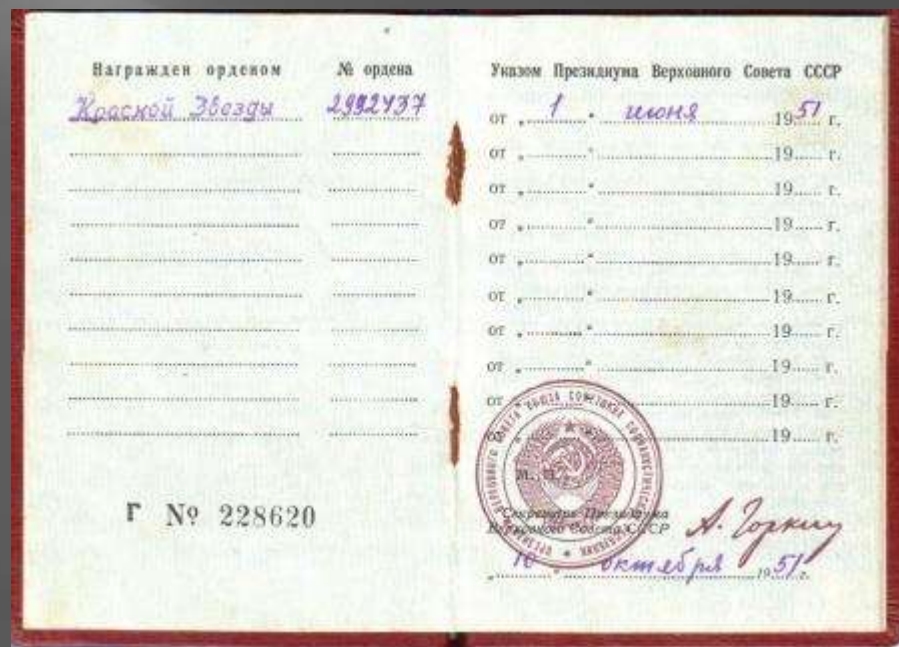 Награжден орденом № ордена
Красной Звезды 2992437
Г № 228620
Указом Президиума Верховного Совета СССР
от „ 1 “ июня 1951 г.
от „ “ 19 г.
от „ “ 19 г.
от „ “ 19 г.
от „ “ 19 г.
от „ “ 19 г.
от „ “ 19 г.
от „ “ 19 г.
от „ “ 19 г.
19 г.
М. П.
Секретарь Президиума
Верховного Совета СССР
А. Горкин
„ 10 “ октября 1951 г.